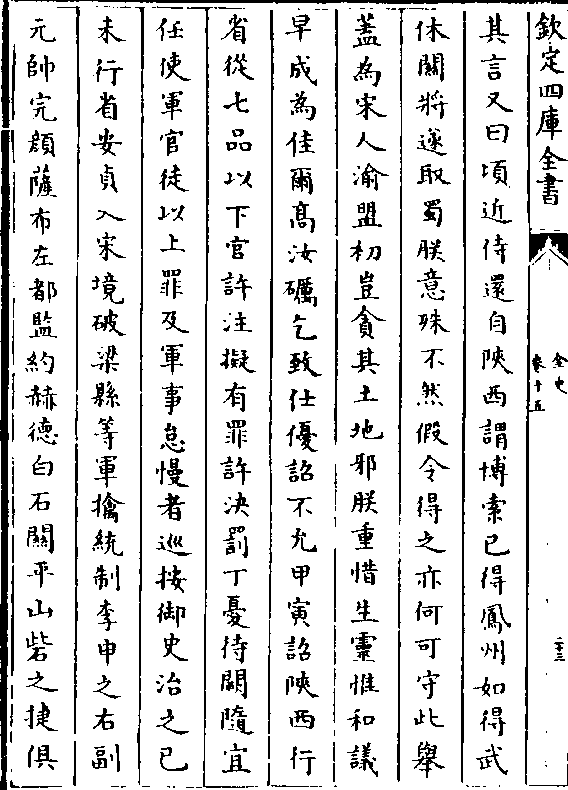 欽定四庫全書
金史
卷十五
二十三
其言又曰項近侍還自陝西謂博索已得鳳州如得武
休關將遂取蜀朕意殊不然假令得之亦何可守此舉
葢為宋人渝盟初豈貪其土地邪朕重惜生靈惟和議
早成為佳爾髙汝礪乞致仕優詔不允甲寅詔陝西行
省從七品以下官許注擬有罪許決罰丁憂待闕隨宜
任使軍官徒以上罪及軍事怠慢者巡按御史治之已
未行省安貞入宋境破梁縣等軍擒統制李申之右副
元帥完顔薩布左都監約赫德白石關平山砦之捷俱